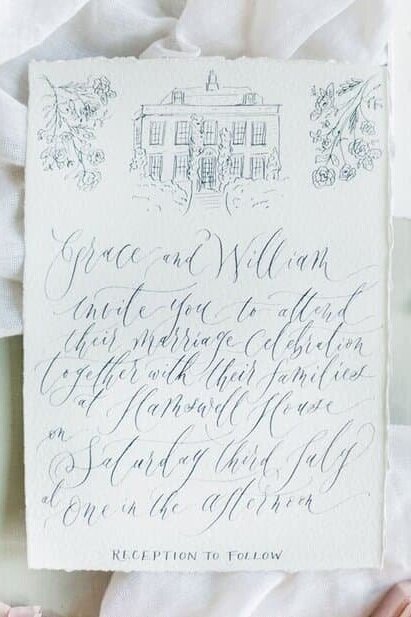 Grace and William
invite you to attend
their marriage celebration
together with their families
at Hamswell House
on
Saturday third July
at one in the afternoon
RECEPTION TO FOLLOW